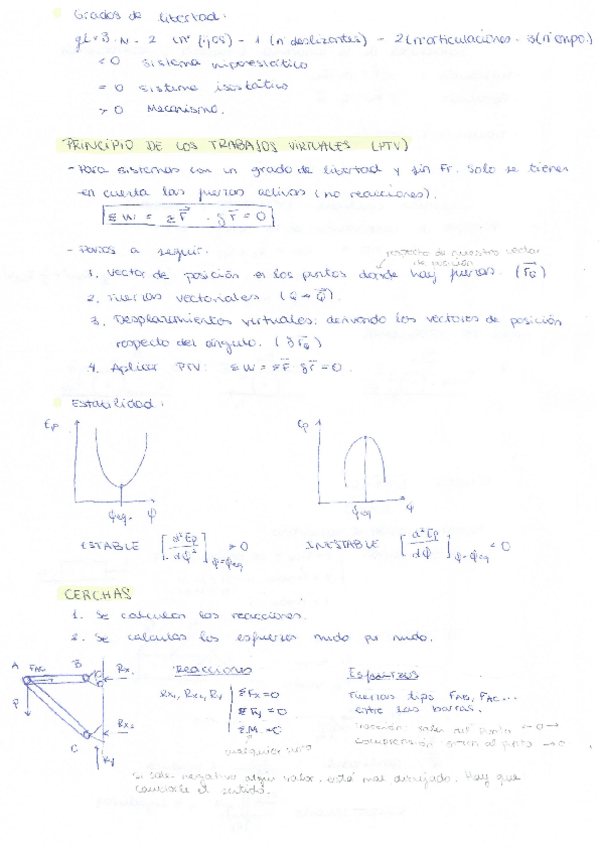 Grados de libertad:
gl = 3·N - 2 (nº fijos) - 1 (nº deslizantes) - 2 (nº articulaciones - 3(nº emp.)
< 0 Sistema hiperestático
= 0 sistema isostático
> 0 Mecanismo.
PRINCIPIO DE LOS TRABAJOS VIRTUALES (PTV)
- Para sistemas con un grado de libertad y sin Fr. Solo se tienen
en cuenta las fuerzas activas (no reacciones).
ΣW = ΣF⃗ · δr⃗ = 0
- Pasos a seguir:
respecto de nuestro vector
de posición
1. Vector de posición en los puntos donde hay fuerzas. (r⃗G)
2. Fuerzas vectoriales. (Q → Q⃗).
3. Desplazamientos virtuales: derivando los vectores de posición
respecto del ángulo. (δr⃗G)
4. Aplicar PTV: ΣW = ΣF⃗ δr⃗ = 0.
Estabilidad:
Ep Ep
φeq. φ φeq φ
ESTABLE [d²Ep/dφ²]φ=φeq > 0 INESTABLE [d²Ep/dφ]φ=φeq < 0
CERCHAS
1. Se calculan las reacciones.
2. Se calculas los esfuerzos nudo por nudo.
A FAC B Rx1 Reacciones Esfuerzos
P Rx1, Rx2, Ry ΣFx = 0 Fuerzas tipo FAB, FAC...
ΣFy = 0 entre las barras.
C Rx2 ΣM = 0 tracción salen del punto ←o→
Ry cualquier punto compresión entran al punto →o
Si sale negativo algún valor, está mal dibujado. Hay que
cambiarle el sentido.